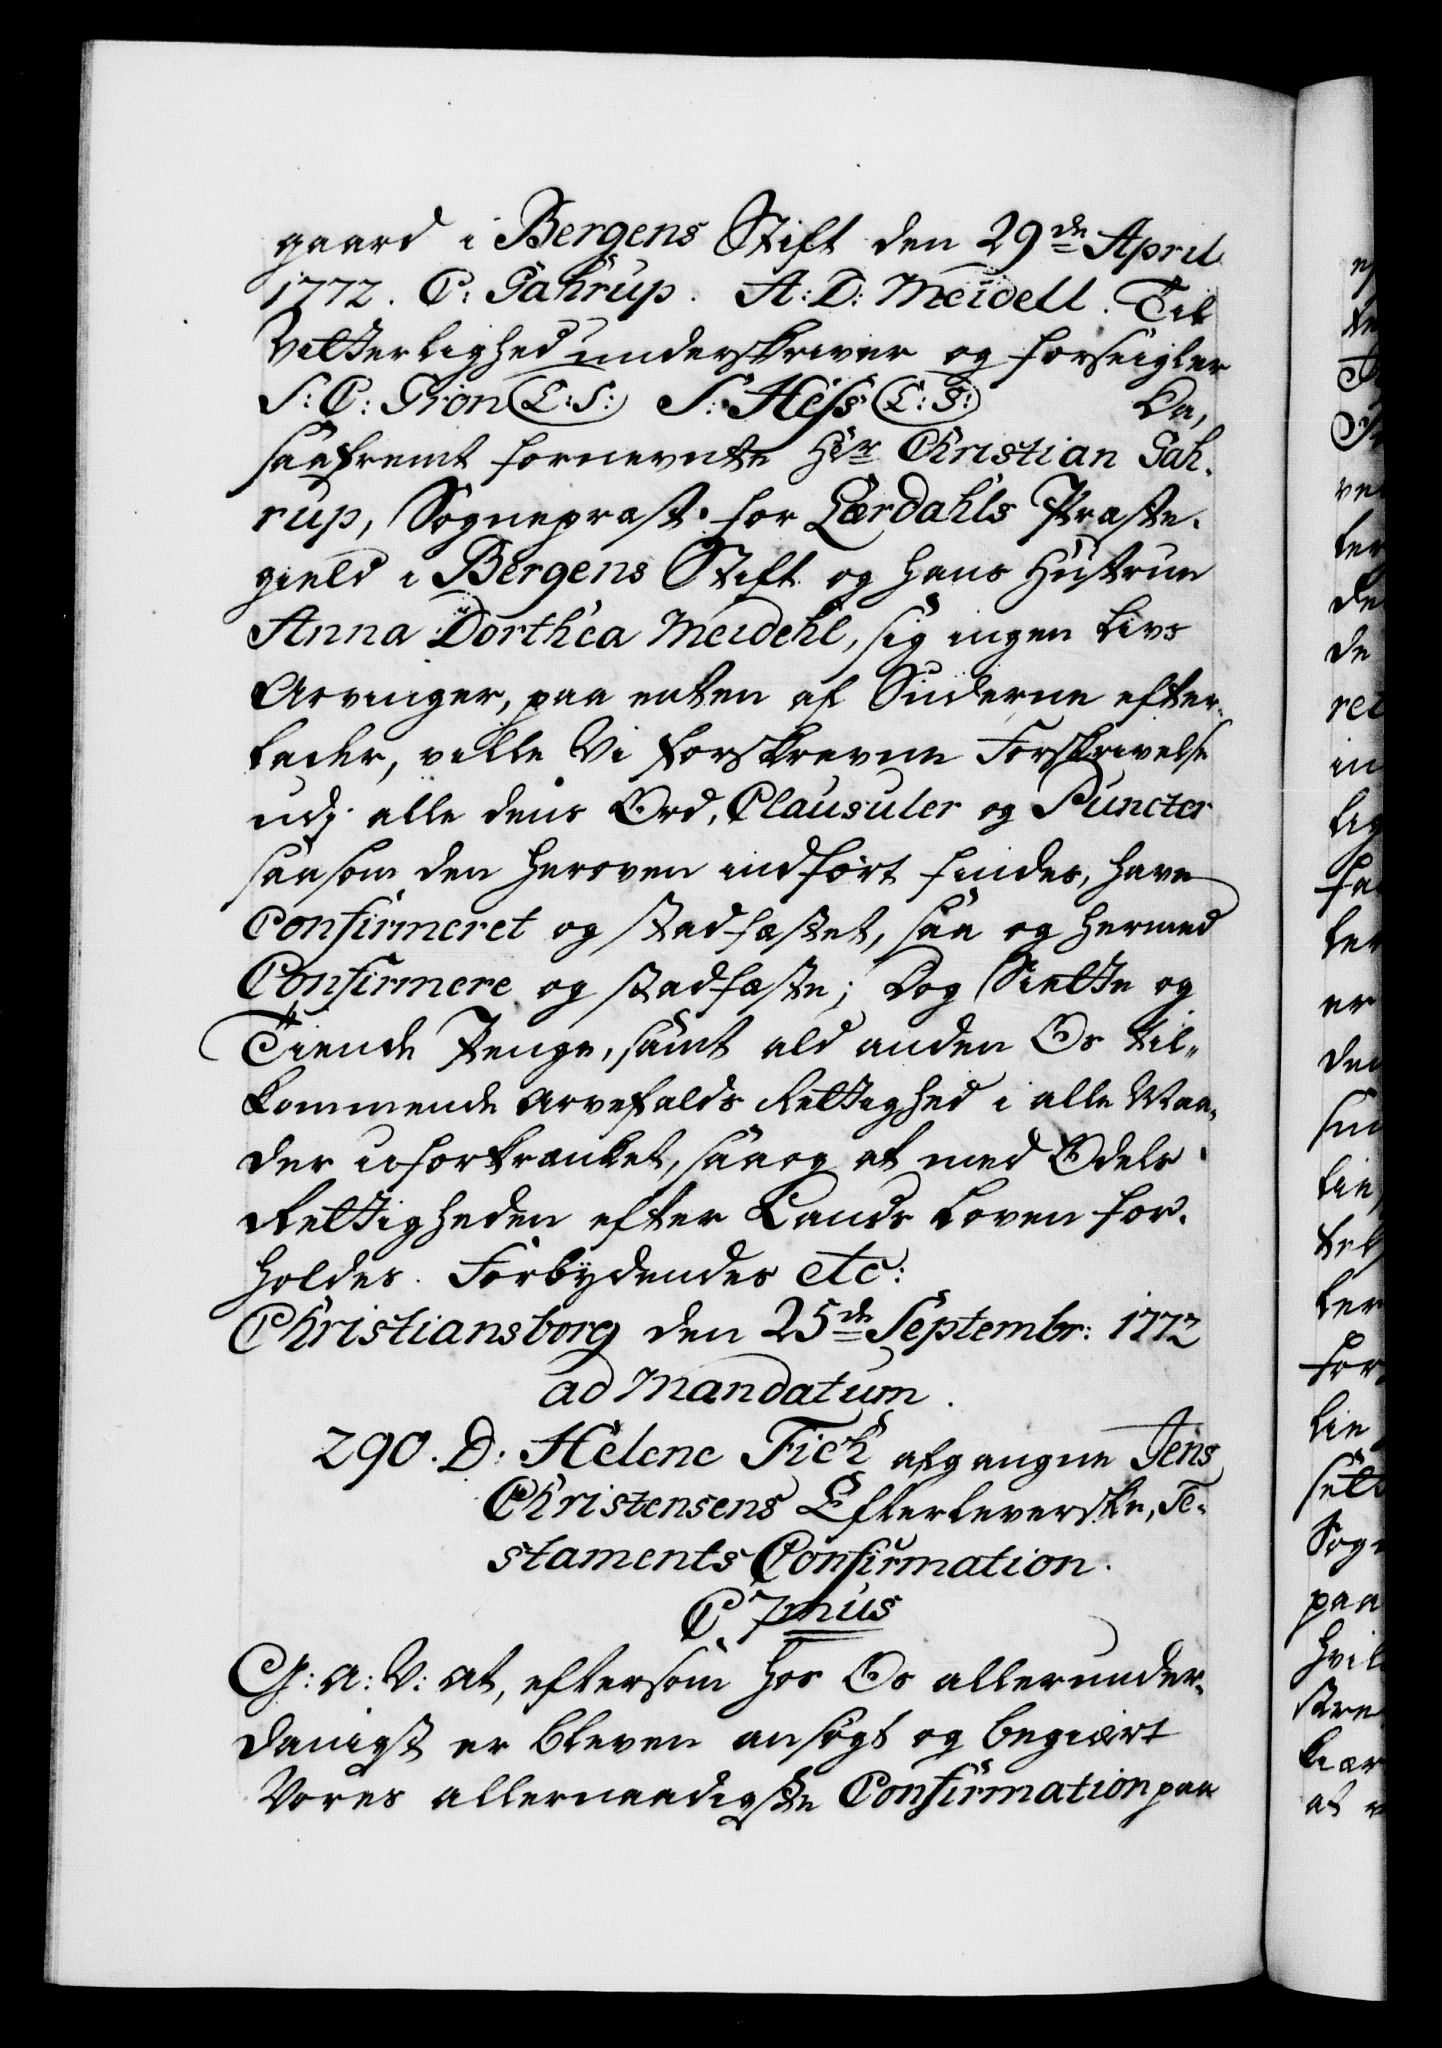 gaard i Bergens Stift den 29de April
1772. C: Gahrup. A: D: Meidell. Til
Vitterlighed underskriver og forseigler
S: C: Grön L: S: S: Hess L: S: Da,
saafremt fornevnte Hr Christian Gah-
rup, Sognepræst for Lærdahls Præste-
gield i Bergens Stift og hans Hustrue
Anna Dorthea Meidehl, sig ingen Livs
Arvinger, paa enten af Siderne efter-
lader, ville Vi forskrevne Forskrivelse
udj alle dens Ord, Clausuler og Puncter
saasom den heroven indført findes, have
Confirmeret og stadfæstet, saa og hermed
Confirmere og stadfæste; Dog Siette og
Tiende Penge, samt ald anden Os til-
kommende Arvefalds Rettighed i alle Maa-
der uforkrænket, saa og at med Odels
Rettigheden efter Lands Loven for-
holdes. Forbydendes etc:
Christiansborg den 25de Septembr: 1772
ad Mandatum.
290. D: Helene Fick afgangne Jens
Christensens Efterleverske, Te-
staments Confirmation.
C 7mus
G: A: V: at, eftersom hos Os allerunder-
danigst er bleven ansøgt og begiært
Vores allernaadigste Confirmation paa